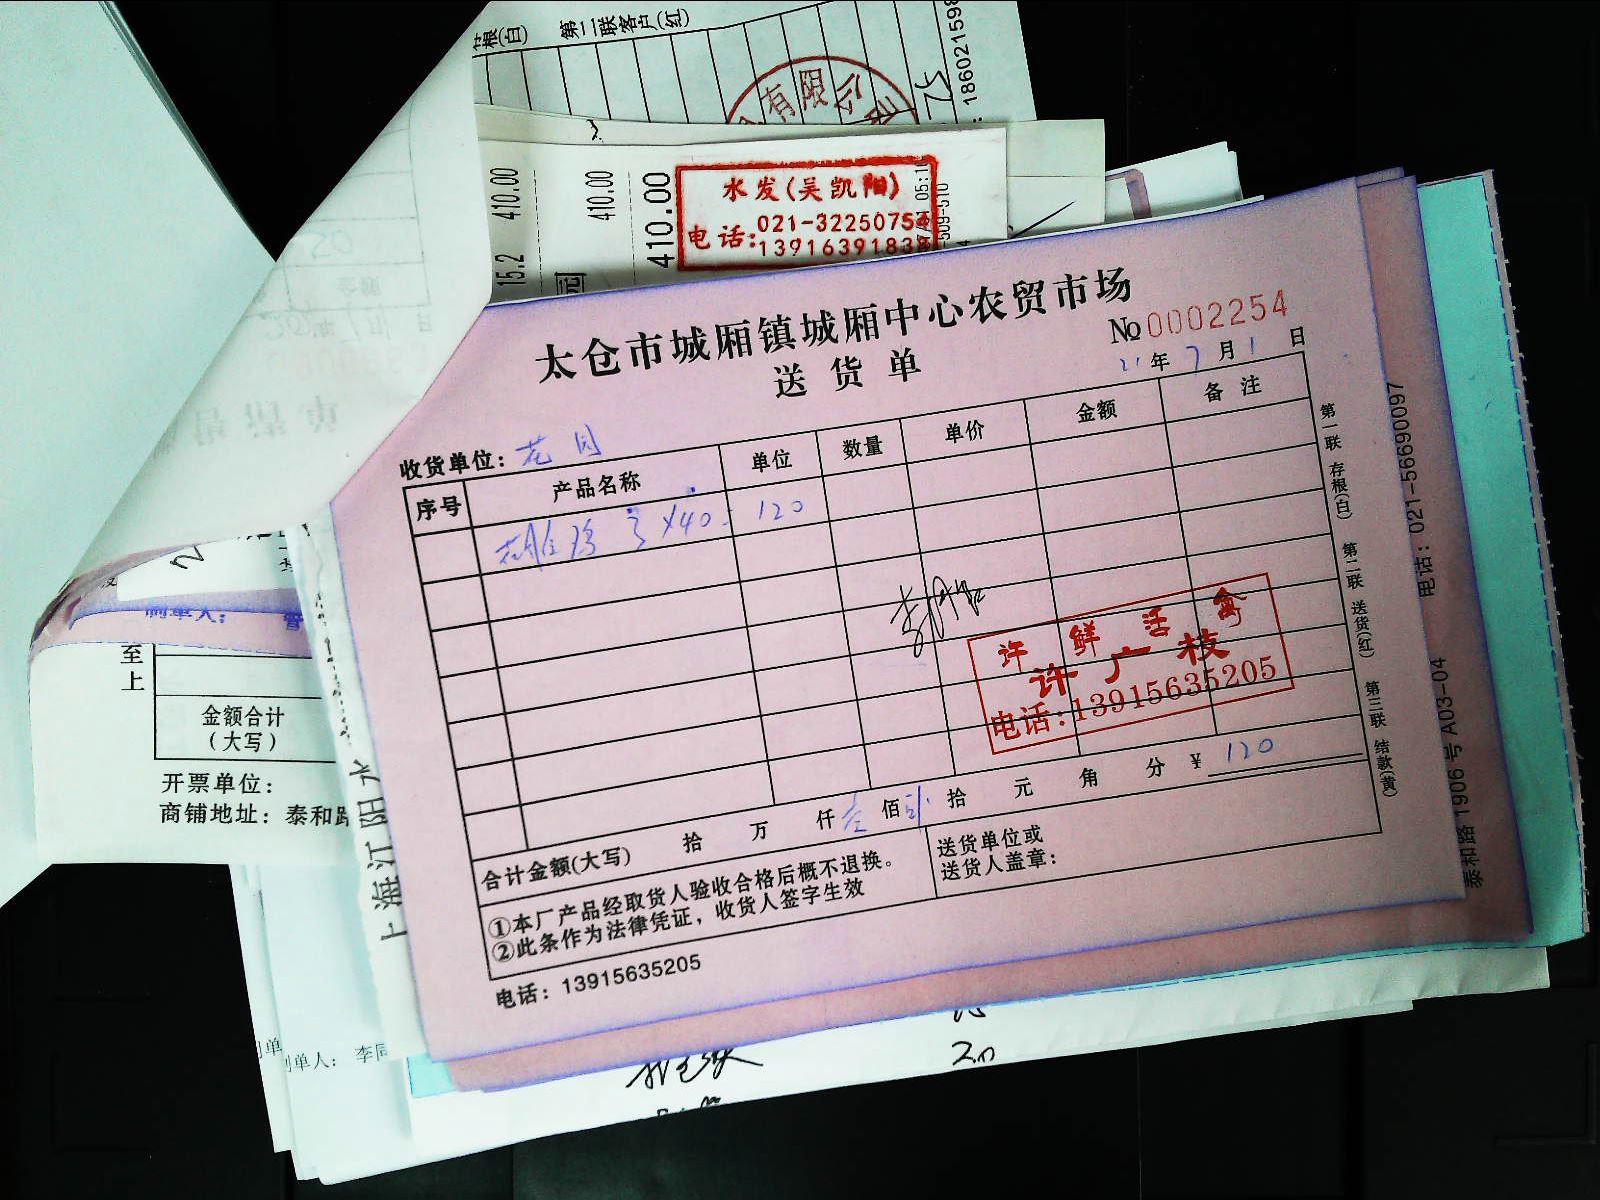 根(白) 第二联客户(红)
有限公
186021598
410.00
410.00
15.2
元
410.00
水发(吴凯阳)
电话:021-3225075
1391639183
05:1
509-510
太仓市城厢镇城厢中心农贸市场
送货单
№0002254
21年7月1日
收货单位：花园
序号 产品名称 单位 数量 单价 金额 备注
3×40 120
许鲜活禽
许广枝
电话:13915635205
合计金额(大写) 拾 万 仟 壹佰 拾 元 角 分 ¥ 120
①本厂产品经取货人验收合格后概不退换。
②此条作为法律凭证，收货人签字生效
送货单位或
送货人盖章：
电话：13915635205
第一联 存根(白) 第二联 送货(红) 第三联 结款(黄)
电话：021-56690097
泰和路1906号A03-04
制单人：
至
上
金额合计
(大写)
开票单位：
商铺地址：泰和路
上海江阳水
制单人：李同